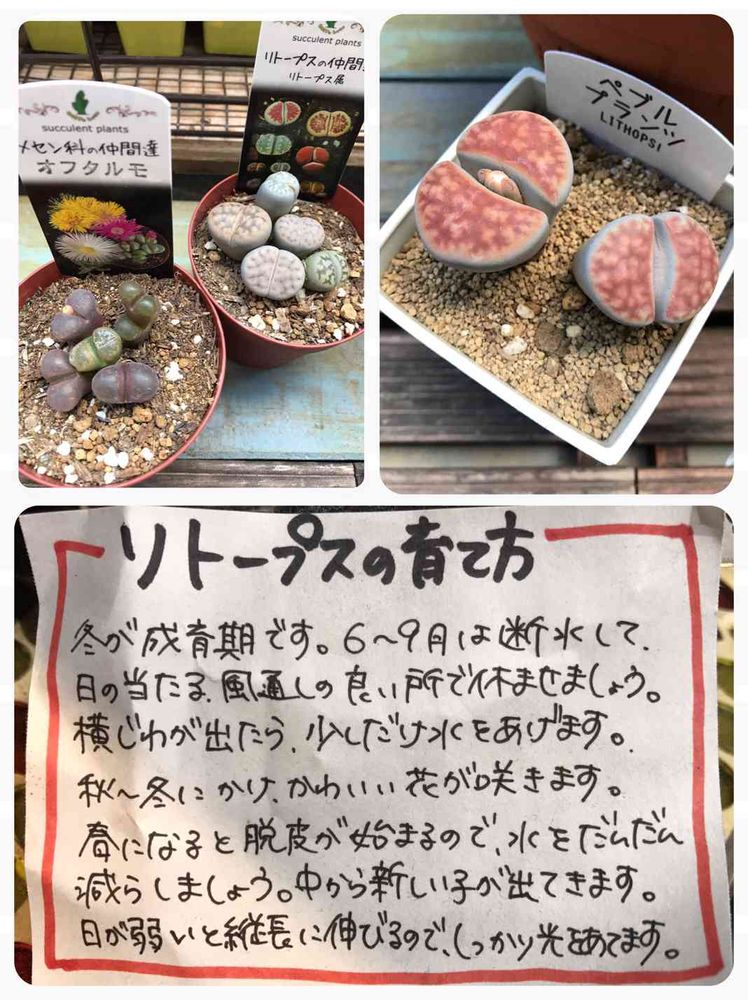 succulent plants
メセン科の仲間達
オフタルモ
succulent plants
リトープスの仲間
リトープス属
ペブル
プランツ
LITHOPS!
リトープスの育て方
冬が成育期です。6〜9月は断水して、
日の当たる、風通しの良い所で休ませましょう。
横じわが出たら、少しだけ水をあげます。
秋〜冬にかけ、かわいい花が咲きます。
春になると脱皮が始まるので、水をだんだん
減らしましょう。中から新しい子が出てきます。
日が弱いと縦長に伸びるので、しっかり光をあてます。